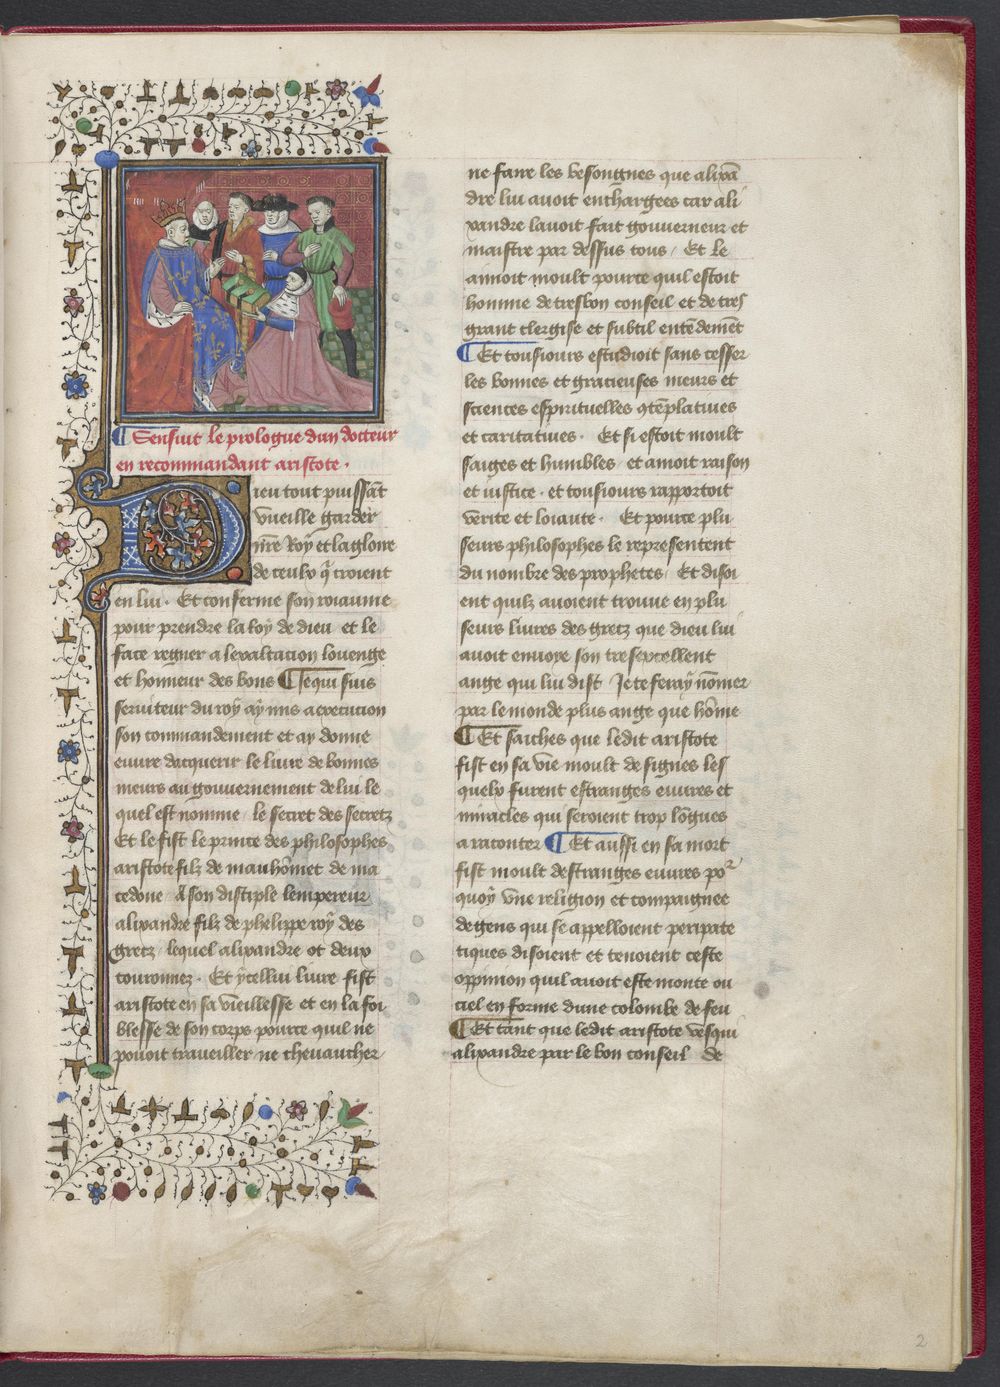 ¶ Sensuit le prologue dun docteur
en recommandant aristote .
Dieu tout puissāt
vueille garder
nr̄e Roy et la gloire
de ceulx q̄ croient
en lui . Et conferme son roiaume
pour prendre la loy de dieu et le
face regner a lexaltacion louenge
et honneur des bons ¶ Je qui suis
seruiteur du roy ay mis a execucion
son commandement et ay donne
euure dacquerir le liure de bonnes
meurs au gouuernement de lui le
quel est nomme le secret des secretz
Et le fist le prince des philosophes
aristote filz de mauhōmet de ma
cedone A son disciple lempereur
alixandre filz de phelippe roy des
gretz lequel alixandre ot deux
couronnez . Et ycellui liure fist
aristote en sa vieillesse et en la foi
blesse de son corps pource quil ne
pouoit traueiller ne cheuaucher
ne faire les besongnes que alixā
dre lui auoit enchargees car ali
xandre lauoit fait gouuerneur et
maistre par dessus tous / Et le
amoit moult pource quil estoit
homme de tresbon conseil et de tres
grant clergise et subtil entēdemēt
¶ Et tousiours estudioit sans cesser
les bonnes et gracieuses meurs et
sciences espirituelles 9tēplatiues
et caritatiues . Et si estoit moult
saiges et humbles et amoit raison
et iustice . et tousiours rapportoit
verite et loiaute . Et pource plu
seurs philosophes le representent
du nombre des prophetes / Et disoi
ent quilz auoient trouue en plu
seurs liures des gretz que dieu lui
auoit enuoye son tresexcellent
ange qui lui dist Je te feray nōmer
par le monde plus ange que hōme
¶ Et saiches que ledit aristote
fist en sa vie moult de signes les
quelx furent estranges euures et
miracles qui seroient trop lōgues
a raconter ¶ Et aussi en sa mort
fist moult destranges euures por
quoy vne religion et compaignee
de gens qui se appelloient peripate
tiques disoient et tenoient ceste
oppinion quil auoit este monte ou
ciel en forme dune colombe de feu
¶ Et tant que ledit aristote vesqui
alixandre par le bon conseil de
2